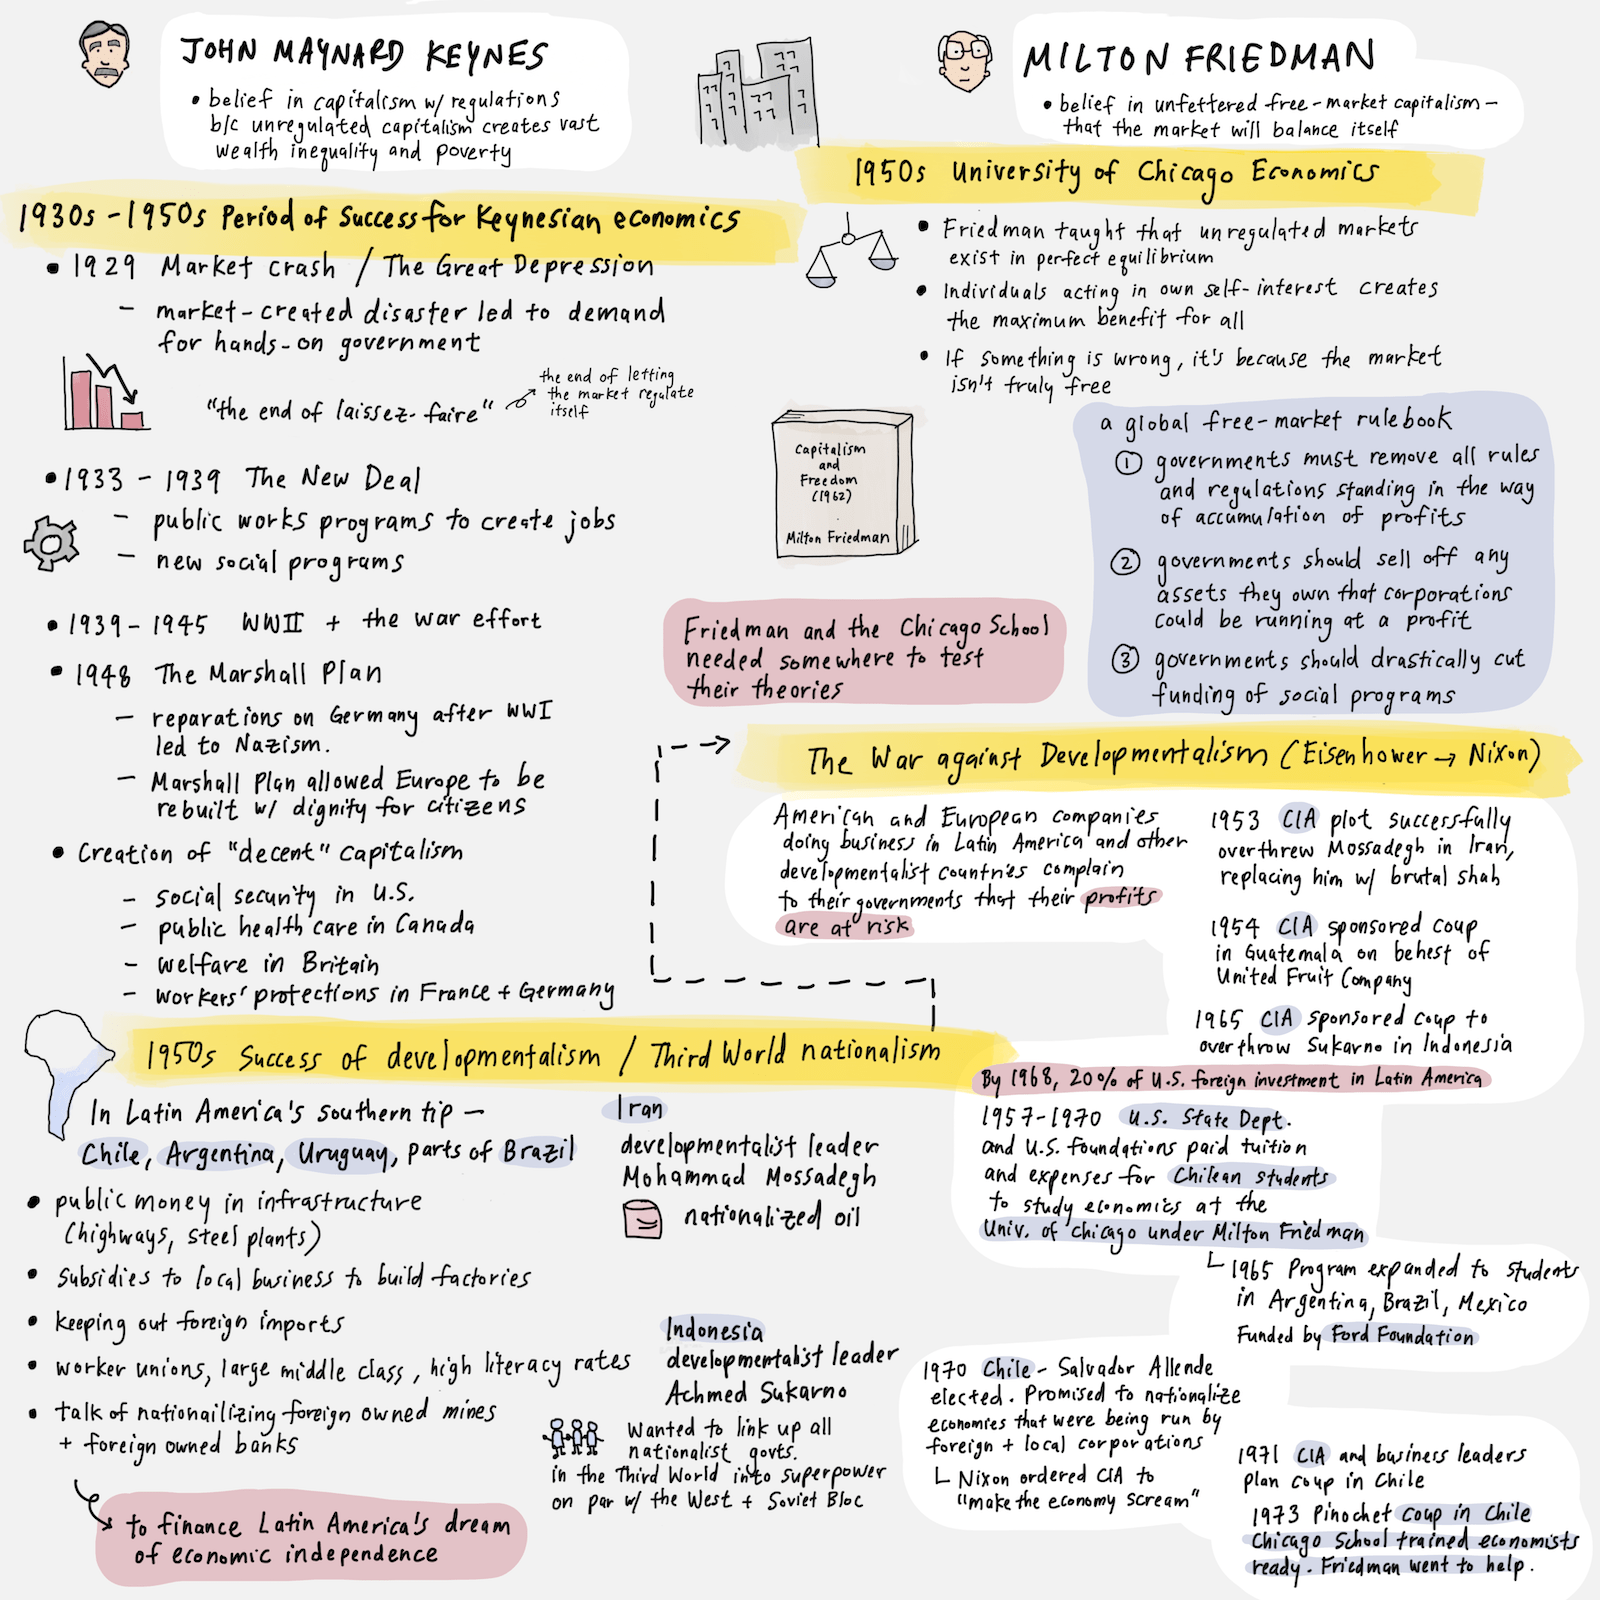 JOHN MAYNARD KEYNES
• belief in capitalism w/ regulations
b/c unregulated capitalism creates vast
wealth inequality and poverty
1930s - 1950s Period of Success for Keynesian economics
• 1929 Market crash / The Great Depression
– market-created disaster led to demand
for hands-on government
"the end of laissez-faire"
the end of letting
the market regulate
itself
• 1933 - 1939 The New Deal
– public works programs to create jobs
– new social programs
• 1939 - 1945 WWII + the war effort
• 1948 The Marshall Plan
– reparations on Germany after WWI
led to Nazism.
– Marshall Plan allowed Europe to be
rebuilt w/ dignity for citizens
• Creation of "decent" capitalism
– social security in U.S.
– public health care in Canada
– welfare in Britain
– workers' protections in France + Germany
1950s Success of developmentalism / Third World nationalism
In Latin America's southern tip –
Chile, Argentina, Uruguay, parts of Brazil
• public money in infrastructure
(highways, steel plants)
• subsidies to local business to build factories
• keeping out foreign imports
• worker unions, large middle class, high literacy rates
• talk of nationailizing foreign owned mines
+ foreign owned banks
to finance Latin America's dream
of economic independence
Iran
developmentalist leader
Mohammad Mossadegh
nationalized oil
Indonesia
developmentalist leader
Achmed Sukarno
Wanted to link up all
nationalist govts.
in the Third World into superpower
on par w/ the West + Soviet Bloc
MILTON FRIEDMAN
• belief in unfettered free-market capitalism –
that the market will balance itself
1950s University of Chicago Economics
• Friedman taught that unregulated markets
exist in perfect equilibrium
• Individuals acting in own self-interest creates
the maximum benefit for all
• If something is wrong, it's because the market
isn't truly free
Capitalism
and
Freedom
(1962)
Milton Friedman
a global free-market rulebook
① governments must remove all rules
and regulations standing in the way
of accumulation of profits
② governments should sell off any
assets they own that corporations
could be running at a profit
③ governments should drastically cut
funding of social programs
Friedman and the Chicago School
needed somewhere to test
their theories
The War against Developmentalism (Eisenhower → Nixon)
American and European companies
doing business in Latin America and other
developmentalist countries complain
to their governments that their profits
are at risk
1953 CIA plot successfully
overthrew Mossadegh in Iran,
replacing him w/ brutal shah
1954 CIA sponsored coup
in Guatemala on behest of
United Fruit Company
1965 CIA sponsored coup to
overthrow Sukarno in Indonesia
By 1968, 20% of U.S. foreign investment in Latin America
1957-1970 U.S. State Dept.
and U.S. foundations paid tuition
and expenses for Chilean students
to study economics at the
Univ. of Chicago under Milton Friedman
1965 Program expanded to students
in Argentina, Brazil, Mexico
Funded by Ford Foundation
1970 Chile - Salvador Allende
elected. Promised to nationalize
economies that were being run by
foreign + local corporations
Nixon ordered CIA to
"make the economy scream"
1971 CIA and business leaders
plan coup in Chile
1973 Pinochet coup in Chile
Chicago School trained economists
ready. Friedman went to help.